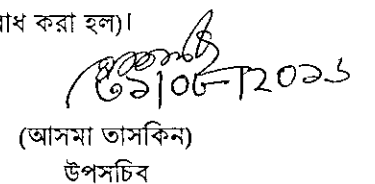 রোধ করা হল)।
৩১|০৮|২০১৬
(আসমা তাসকিন)
উপসচিব